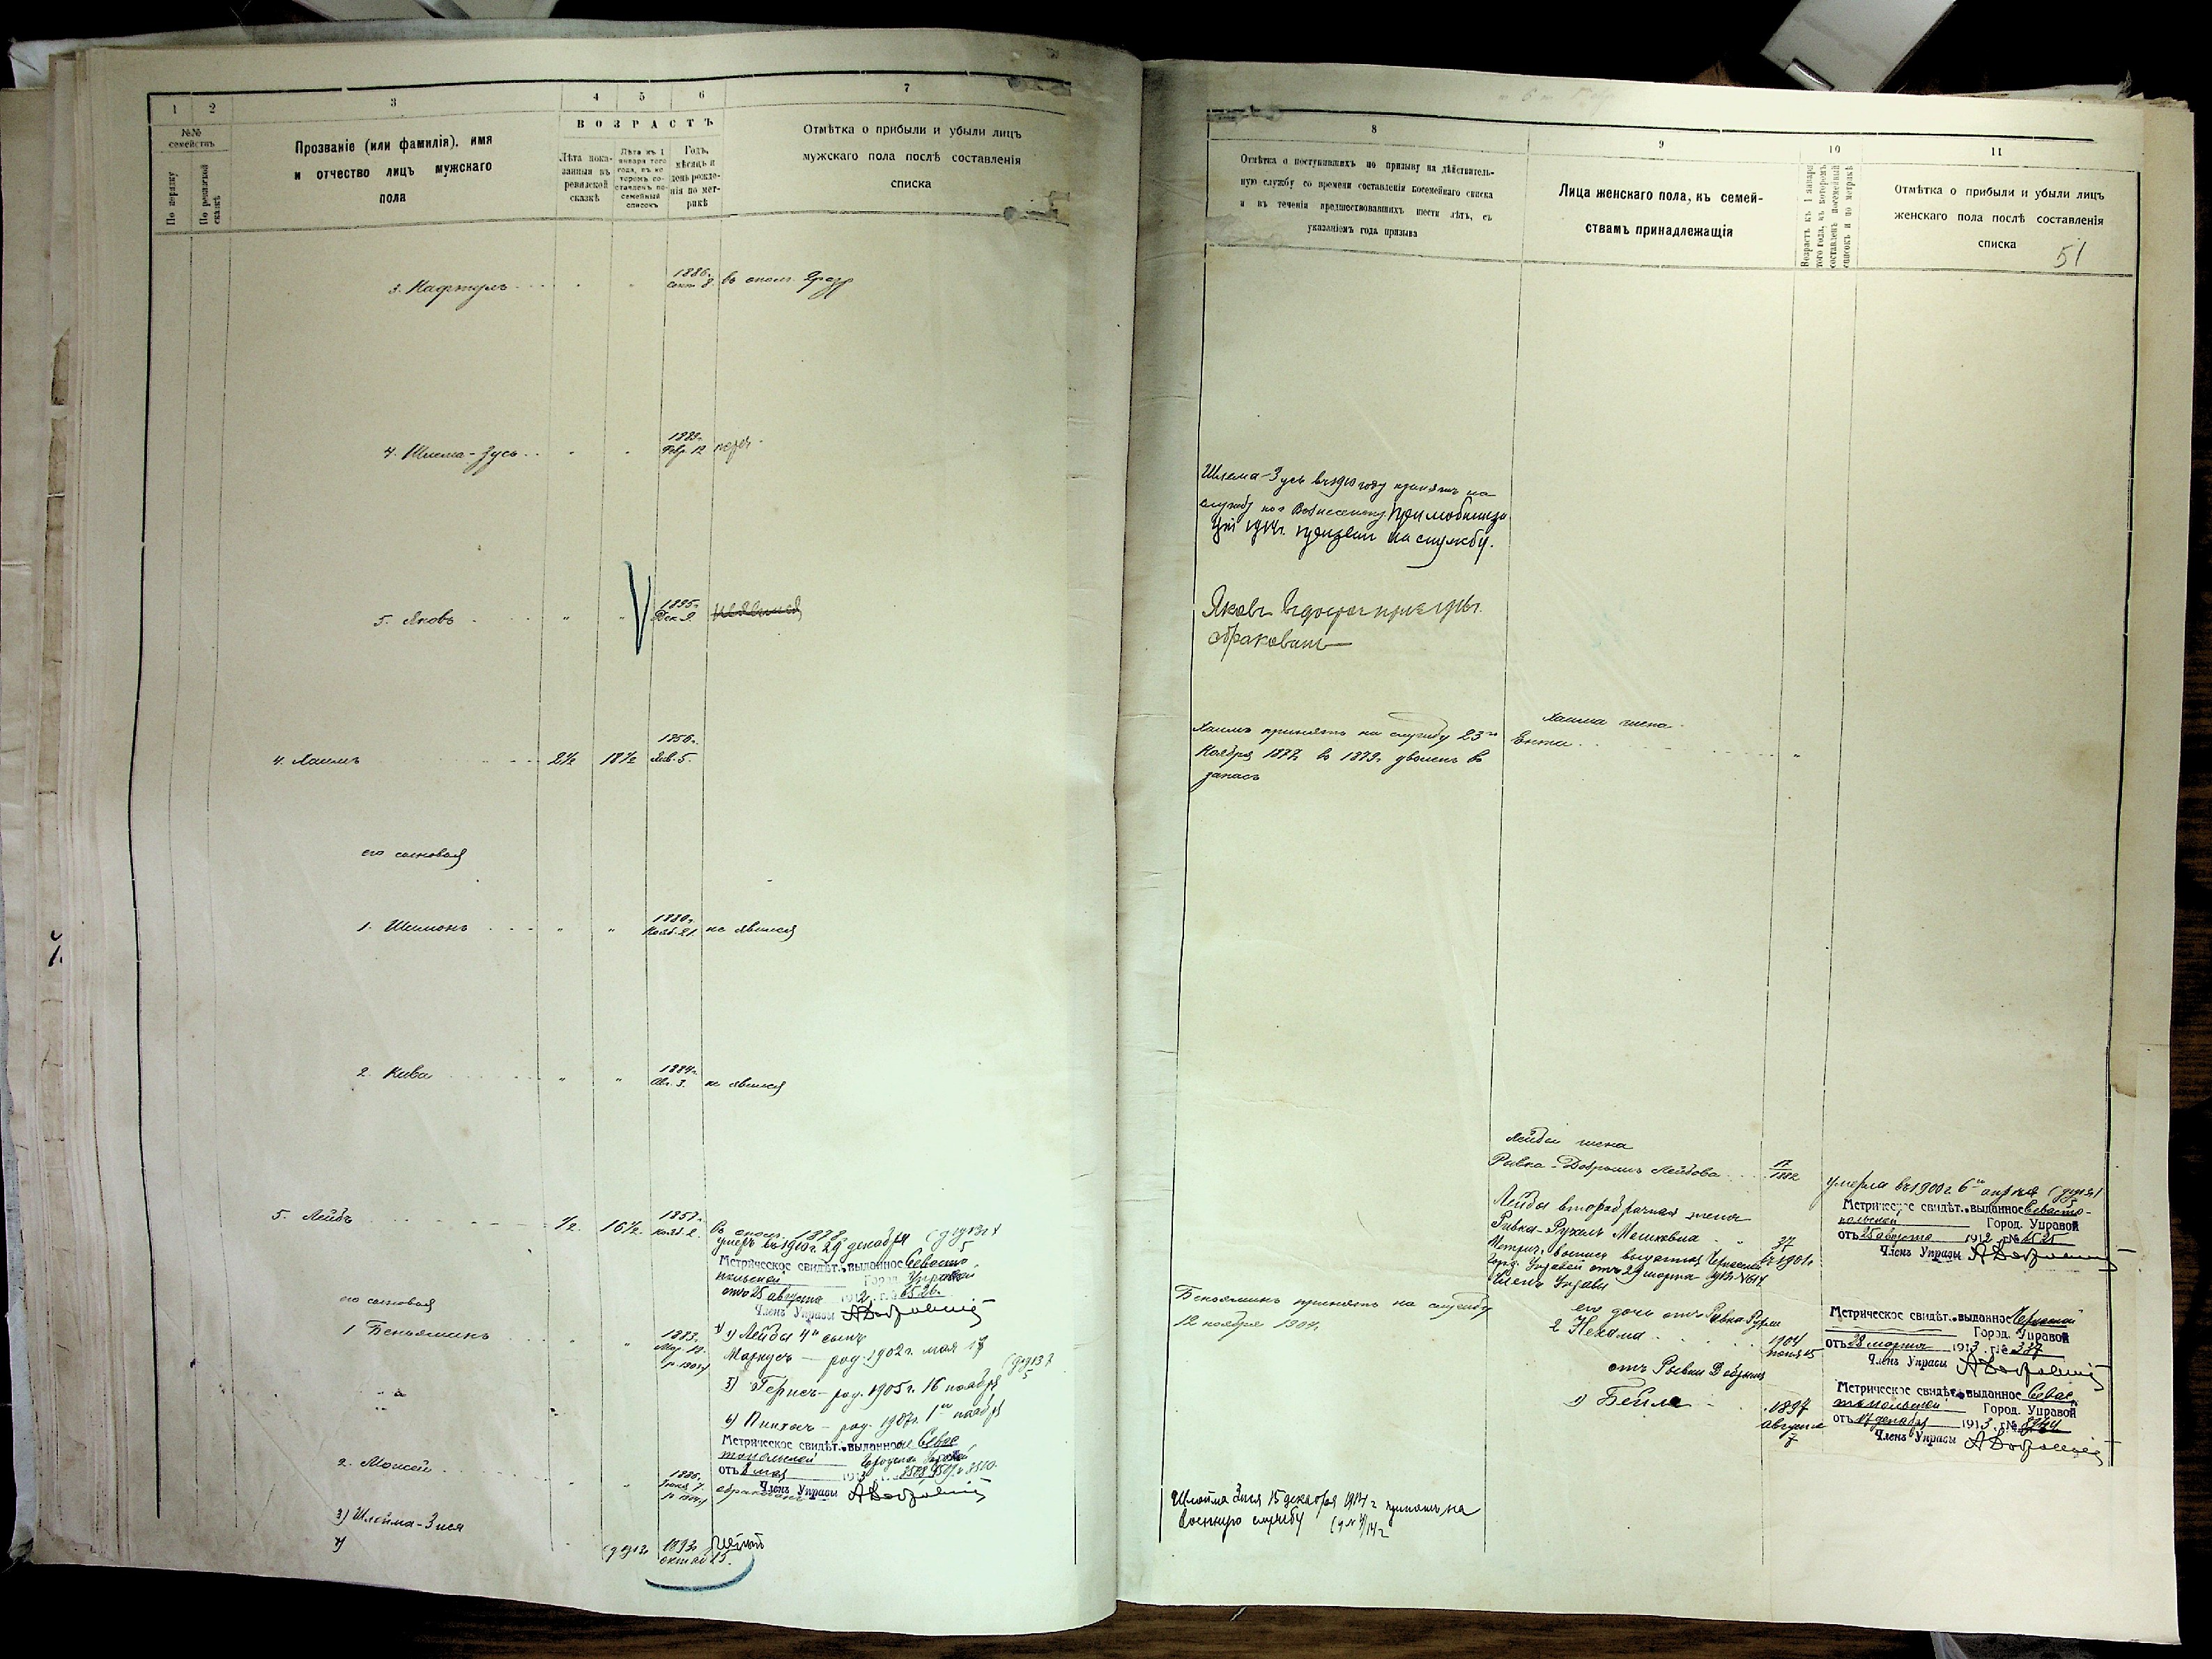 1 2 3 4 5 6 7
№№ семействъ
По порядку
По ревизской сказкѣ
Прозваніе (или фамилія), имя
и отчество лицъ мужскаго
пола
ВОЗРАСТЪ
Лѣта пока-
занныя въ
ревизской
сказкѣ
Лѣта къ 1
января того
года, въ ко-
торомъ со-
ставленъ по-
семейный
списокъ
Годъ,
мѣсяцъ и
день рожде-
нія по мет-
рикѣ
Отмѣтка о прибыли и убыли лицъ
мужскаго пола послѣ составленія
списка
3. Нафтулъ
1886г.
Сент. 8.
въ опол. 2 разр
4. Шлема-Зусь
1889г.
Февр. 12
5. Яковъ
1895г.
Дек. 9.
неявился
4. Хаимъ 2½ 18½
1856г.
Янв. 5.
его сыновья
1. Шимонъ
1880г.
Нояб. 21.
не явился
2. Кива
1884г.
Ав. 3.
не явился
5. Лейбъ ½ 16½
1857г.
Нояб. 2.
въ опол. 1878г.
умеръ въ 1910 г. 29 декабря
Метрическое свидѣт., выданное Севасто
польской Город. Управой
отъ 25 августа 1912 г. № 6526.
Членъ Управы
его сыновья
1 Беньяминъ
1883г.
Мар. 19.
1) Лейбы 4й сынъ
Маркусъ — род. 1902 г. мая 17
5) Герш — род. 1905 г. 16 ноября
6) Пинхас — род. 1907г. 1го ноября
Метрическое свидѣт., выданное Севас
топольской Городской Управой
отъ 8 мая 1913 г. № 3508, 3509 и 3510.
Членъ Управы
2. Моисей
1886г.
Іюня 7.
обракованъ
3) Шлойма-Зися
4)
1893г.
октяб 15.
8 9 10 11
Отмѣтка о поступившихъ по призыву на дѣйствитель-
ную службу со времени составленія посемейнаго списка
и въ теченіи предшествовавшихъ шести лѣтъ, съ
указаніемъ года призыва
Лица женскаго пола, къ семей-
ствамъ принадлежащія
Возрастъ къ 1 января
того года, въ которомъ
составленъ посемейный
списокъ и по метрикѣ
Отмѣтка о прибыли и убыли лицъ
женскаго пола послѣ составленія
списка
51
Шлема-Зусь въ 1910 году принятъ на
службу по г. Вознесенску При мобилиза
ціи 1914г. призван на службу.
Яковъ въ досроч приз 1916г.
обракованъ
Хаимъ принятъ на службу 23го
Ноября 1877г. въ 1879г. уволенъ въ
запасъ
Хаима жена
Ента
Лейбы жена
Ривка-Добрышъ Лейбова
17
1882
умерла въ 1900 г. 6го апреля
Метрическое свидѣт., выданное Севасто-
польской Город. Управой
отъ 25 августа 1912 г. № 6525
Членъ Управы
Лейбы второбрачная жена
Ривка-Рухаль Мошковна
37
въ 1901г.
Метрич. выпись выданная Черкасской
Город. Управой отъ 29 марта 1913г. № 614
Членъ Управы
Беньяминъ принятъ на службу
12 ноября 1904г.
его дочь отъ Ривка Рухли
2 Нехама
1904
Метрическое свидѣт., выданное Черкасской
Город. Управой
отъ 28 марта 1913 г. № 337
Членъ Управы
отъ Ривки Добрыш
1) Бейла
1897
августа
7
Метрическое свидѣт., выданное Севас
топольской Город. Управой
отъ 17 декабря 1913 г. №
Членъ Управы
Шлойма Зися 15 декабря 1914 г. принятъ на
военную службу